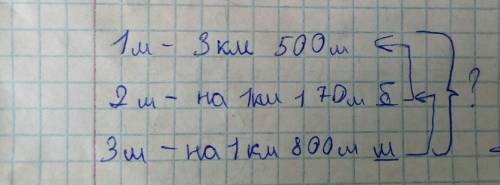 1м - 3 км 500м
2м - на 1км 170м б ?
3м - на 1км 800м м